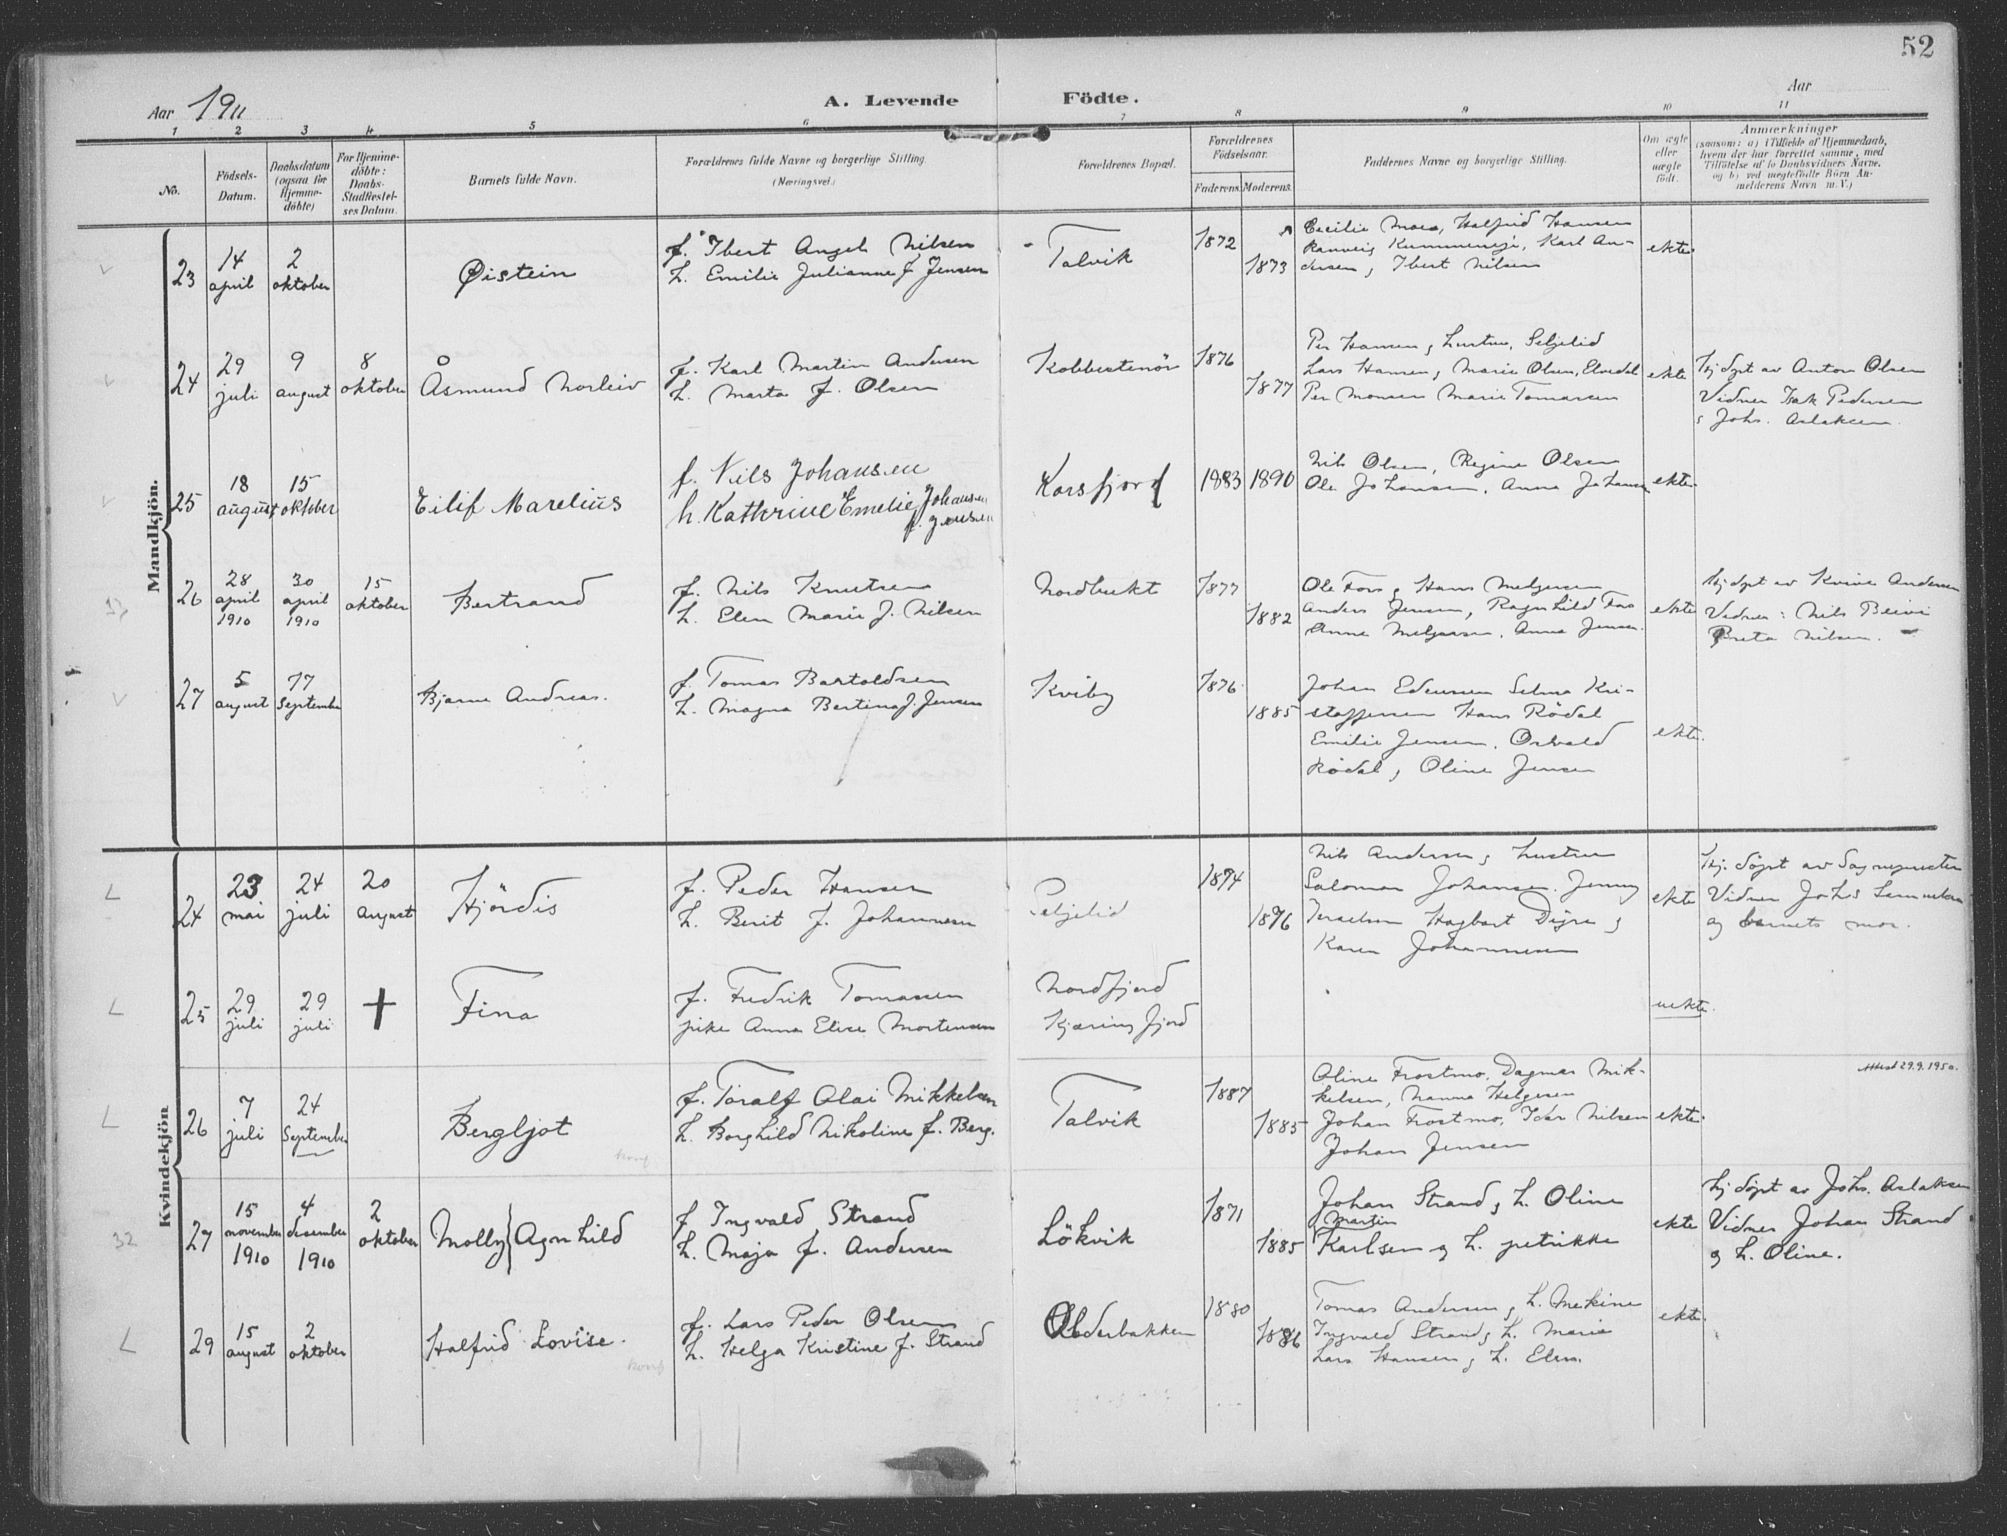 52
Aar 1911
A. Levende Födte.
Aar
1 2 3 4 5 6 7 8 9 10 11
No.
Födsels-
Datum.
Daabsdatum
(ogsaa for
Hjemme-
döbte)
For Hjemme-
döbte:
Daabs-
Stadfæstel-
ses Datum.
Barnets fulde Navn.
Forældrenes fulde Navne og borgerlige Stilling
(Næringsvei.)
Forældrenes Bopæl.
Forældrenes
Födselsaar.
Faderens. Moderens.
Faddernes Navne og borgerlige Stilling.
Om ægte
eller
uægte
födt.
Anmærkninger
(saasom: a) i Tilfælde af Hjemmedaab,
hvem der har forrettet samme, med
Tilföielse af to Daabsvidners Navne,
og b) ved uægtefödte Börn An-
melderens Navn m. V.)
Mandkjön.
23
14
april
2
oktober
Øistein
f. Ibert Angel Nilsen
h. Emilie Julianne f. Jensen
Talvik
1872
1873
Cecilie Moes, Halfrid Hansen
Ranveig Kummeneje, Karl An-
dersen, Ibert Nilsen
ekte
24
29
juli
9
august
8
oktober
Åsmund Norleiv
f. Karl Martin Andersen
h. Marta f. Olsen
Kobbestenör
1876
1877
Per Hansen, hustru, Seljelid
Lars Hansen, Marie Olsen, Elvedal
Per Monsen Marie Tomassen
ekte
Hj.döpt av Anton Olsen
Vidner Isak Pedersen
Johs. Aslaksen
25
18
august
15
oktober
Eilif Marelius
f. Nils Johansen
h. Kathrine Emelie Johansen
f. Jensen
Korsfjord
1883 1890
Nils Olsen, Regine Olsen
Ole Johansen, Anna Johansen
ekte
13
26
28
april
1910
30
april
1910
15
oktober
Bertrand
f. Nils Knutsen
h. Elen Marie f. Nilsen
Nordbukt
1877
1882
Ole Fors, Hans Melgersen
Anders Jensen, Ragnhild Fors
Anne Melgersen, Anna Jensen
ekte
Hj.döpt av Kvive Andersen
Vidner: Nils Beivi
Preta Nilsen.
27
5
august
17
september
Bjarne Andreas.
f. Tomas Bartoldsen
h. Magna Bertina f. Jensen
Kviby
1876
1885
Johan Edensen Selma Kri-
stoffersen Hans Rödal
Emilie Jensen, Osvald
Rödal, Oline Jensen
ekte
Kvindekjön
24
23
mai
24
juli
20
august
Hjördis
f. Peder Hansen
h. Berit f. Johannesen
Seljelid
1874
1876
Nils Andersen, hustru
Salomon Johansen, Jenny
Israelsen Hagbart Digre
Karen Johannesen
ekte
Hj. döpt av Sogneprester
Vidner Johs
og barnets mor.
25
29
juli
29
juli
+
Fina
f. Fredrik Tomassen
pike Anna Elise Mortensen
Nordfjord
Kjæringfjord
uekte
26
7
juli
24
september
Bergljot
konf
f. Toralf Olai Mikkelsen
h. Borghild Nikoline f. Berg.
Talvik
1887
1885
Oline Frostmo, Dagmar Mik-
kelsen, Nanna Helgesen
Johan Frostmo, Idar Nilsen
Johan Jensen
ekte
Attest 29.9.1950.
32
27
15
november
1910
4
desember
1910
2
oktober
Molly Agnhild
f. Ingvald Strand
h. Maja f. Andersen
Lökvik
1871
1885
Johan Strand, h. Oline
Martin
Karlsen og h. petrikke
ekte
hj döpt av Johs. Aslaksen
Vidner Johan Strand
og h. Oline.
29
15
august
2
oktober
Halfrid Lovise.
konf
f. Lars Peder Olsen
h. Helga Kristine f. Strand
Olderbakken
1880
1886
Tomas Andersen, h. Mekine
Ingvald Strand, h. Marie
Lars Hansen, h. Elen.
ekte